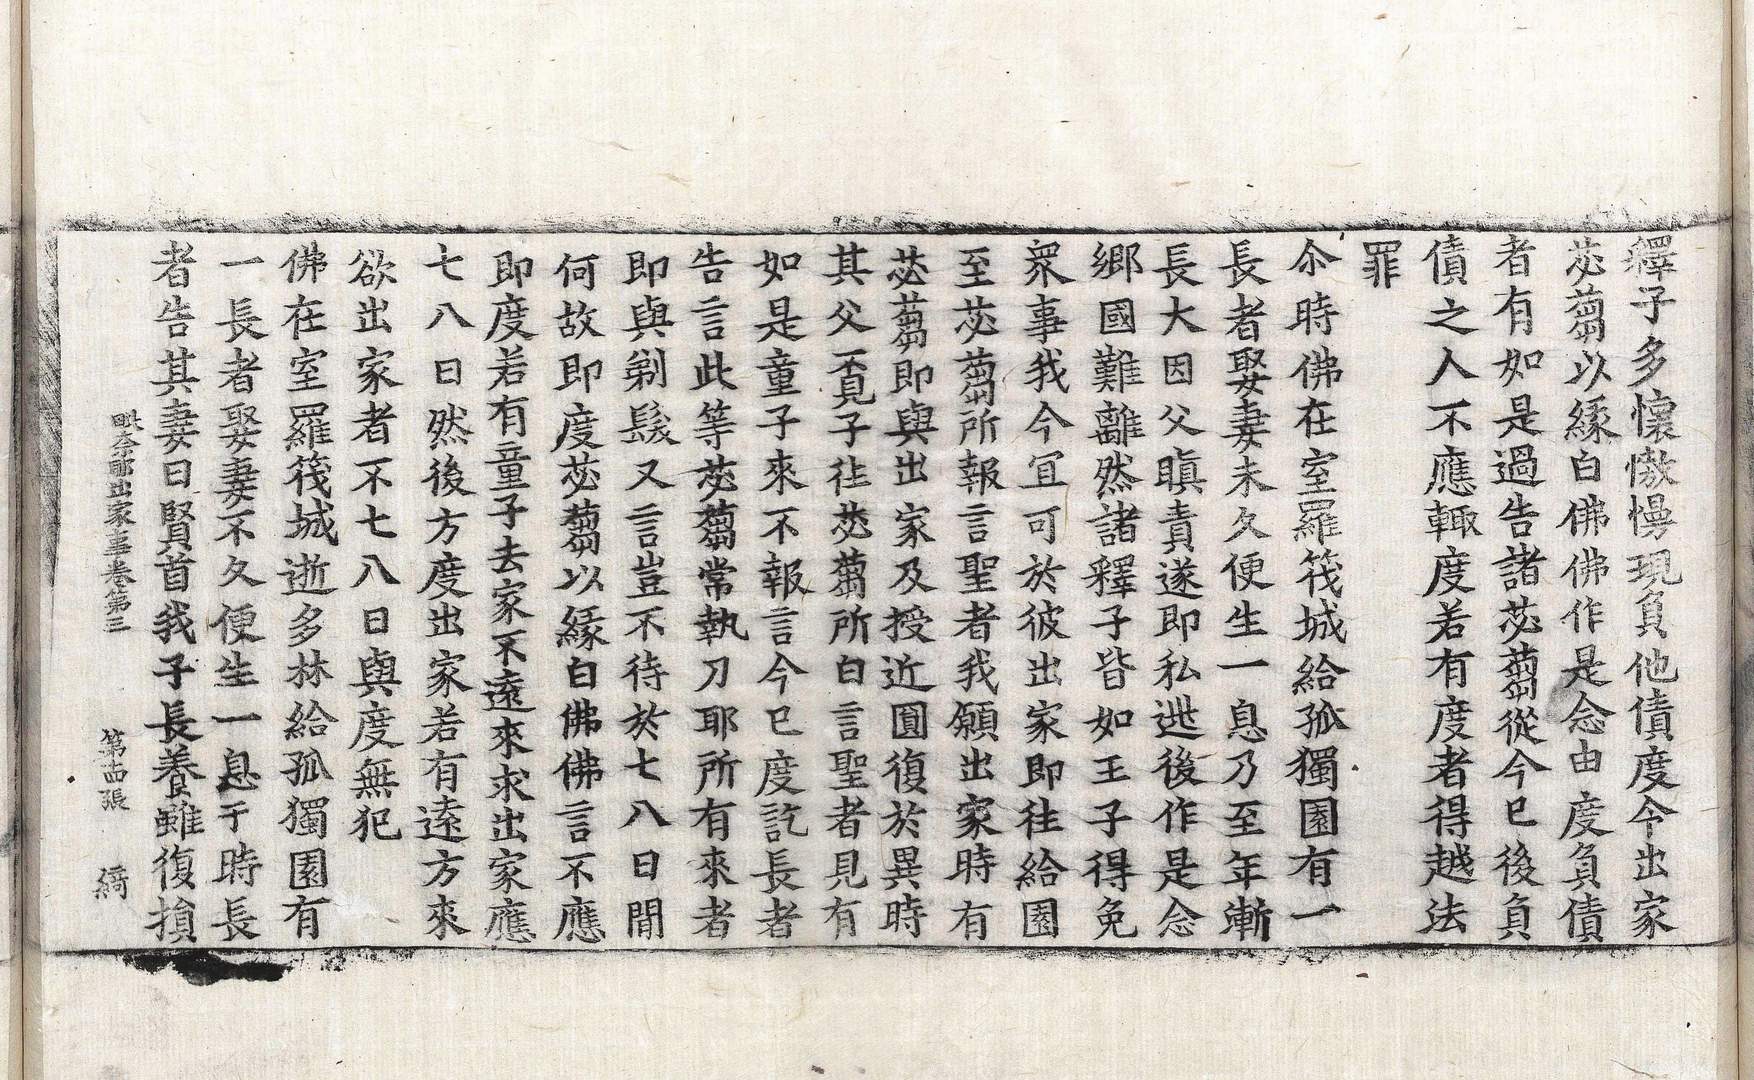 釋子多懷憿慢現負他債度今出家
苾蒭以緣白佛佛作是念由度負債
者有如是過告諸苾蒭從今已後負
債之人不應輙度若有度者得越法
罪
尒時佛在室羅筏城給孤獨園有一
長者娶妻未久便生一息乃至年漸
長大因父瞋責遂即私逃後作是念
鄉國難離然諸釋子皆如王子得免
衆事我今冝可於彼出家即往給園
至苾蒭所報言聖者我願出家時有
苾蒭即與出家及授近圓復於異時
其父覓子往苾蒭所白言聖者見有
如是童子來不報言今已度訖長者
告言此等苾蒭常執刀耶所有來者
即與剃髮又言豈不待於七八日閒
何故即度苾蒭以緣白佛佛言不應
即度若有童子去家不遠來求出家應
七八日然後方度出家若有遠方來
欲出家者不七八日與度無犯
佛在室羅筏城逝多林給孤獨園有
一長者娶妻不久便生一息于時長
者告其妻曰賢首我子長養雖復損
毗奈耶出家事卷第三 第十四張